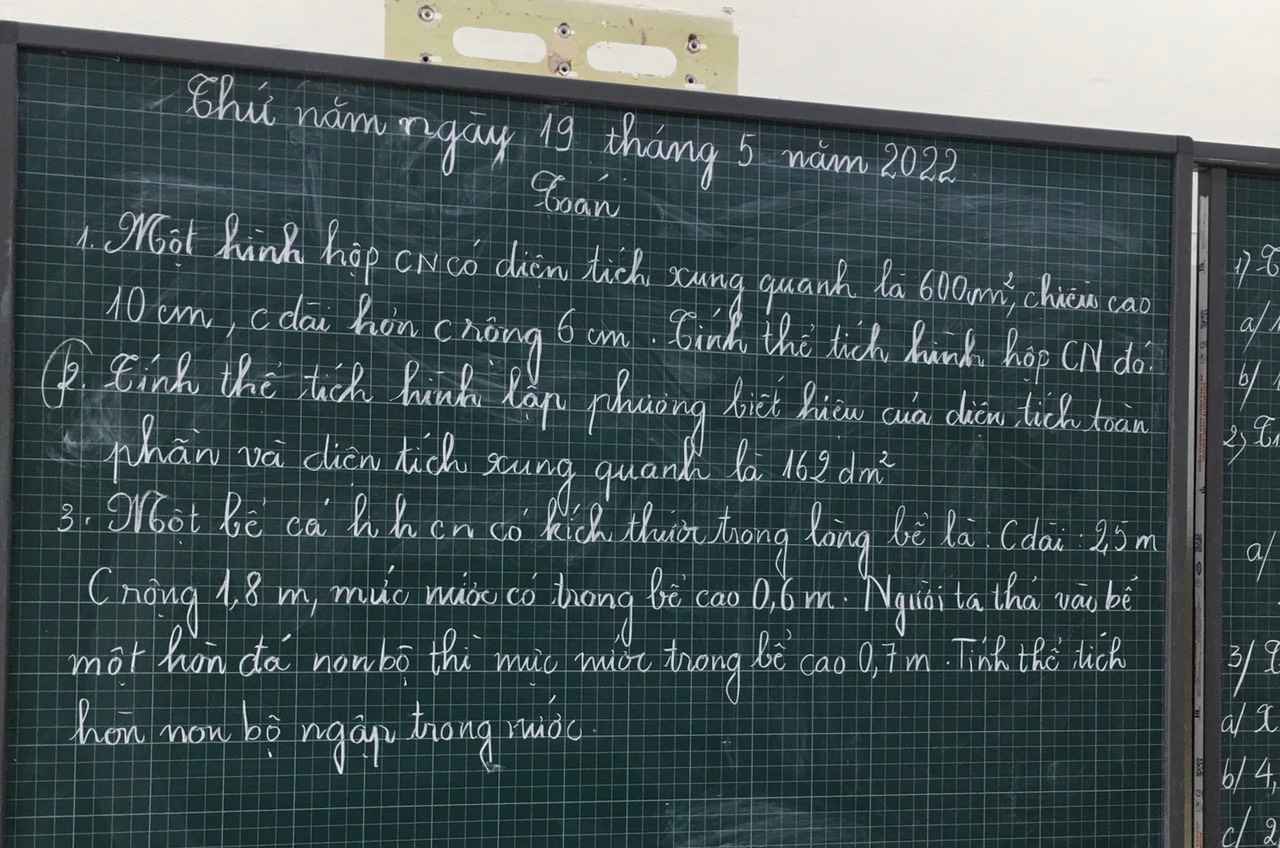 Thứ năm ngày 19 tháng 5 năm 2022
Toán
1. Một hình hộp CN có diện tích xung quanh là 600cm², chiều cao
10 cm, c dài hơn c rộng 6 cm. Tính thể tích hình hộp CN đó.
2. Tính thể tích hình lập phương biết hiệu của diện tích toàn
phần và diện tích xung quanh là 162 dm²
3. Một bể cá h h cn có kích thước trong lòng bể là: C dài: 2,5 m
C rộng 1,8 m, mức nước có trong bể cao 0,6 m. Người ta thả vào bể
một hòn đá non bộ thì mực nước trong bể cao 0,7 m. Tính thể tích
hòn non bộ ngập trong nước.
1)
a/
b/
2)
a/
3/
a/ X
b/ 4,
c/ 2